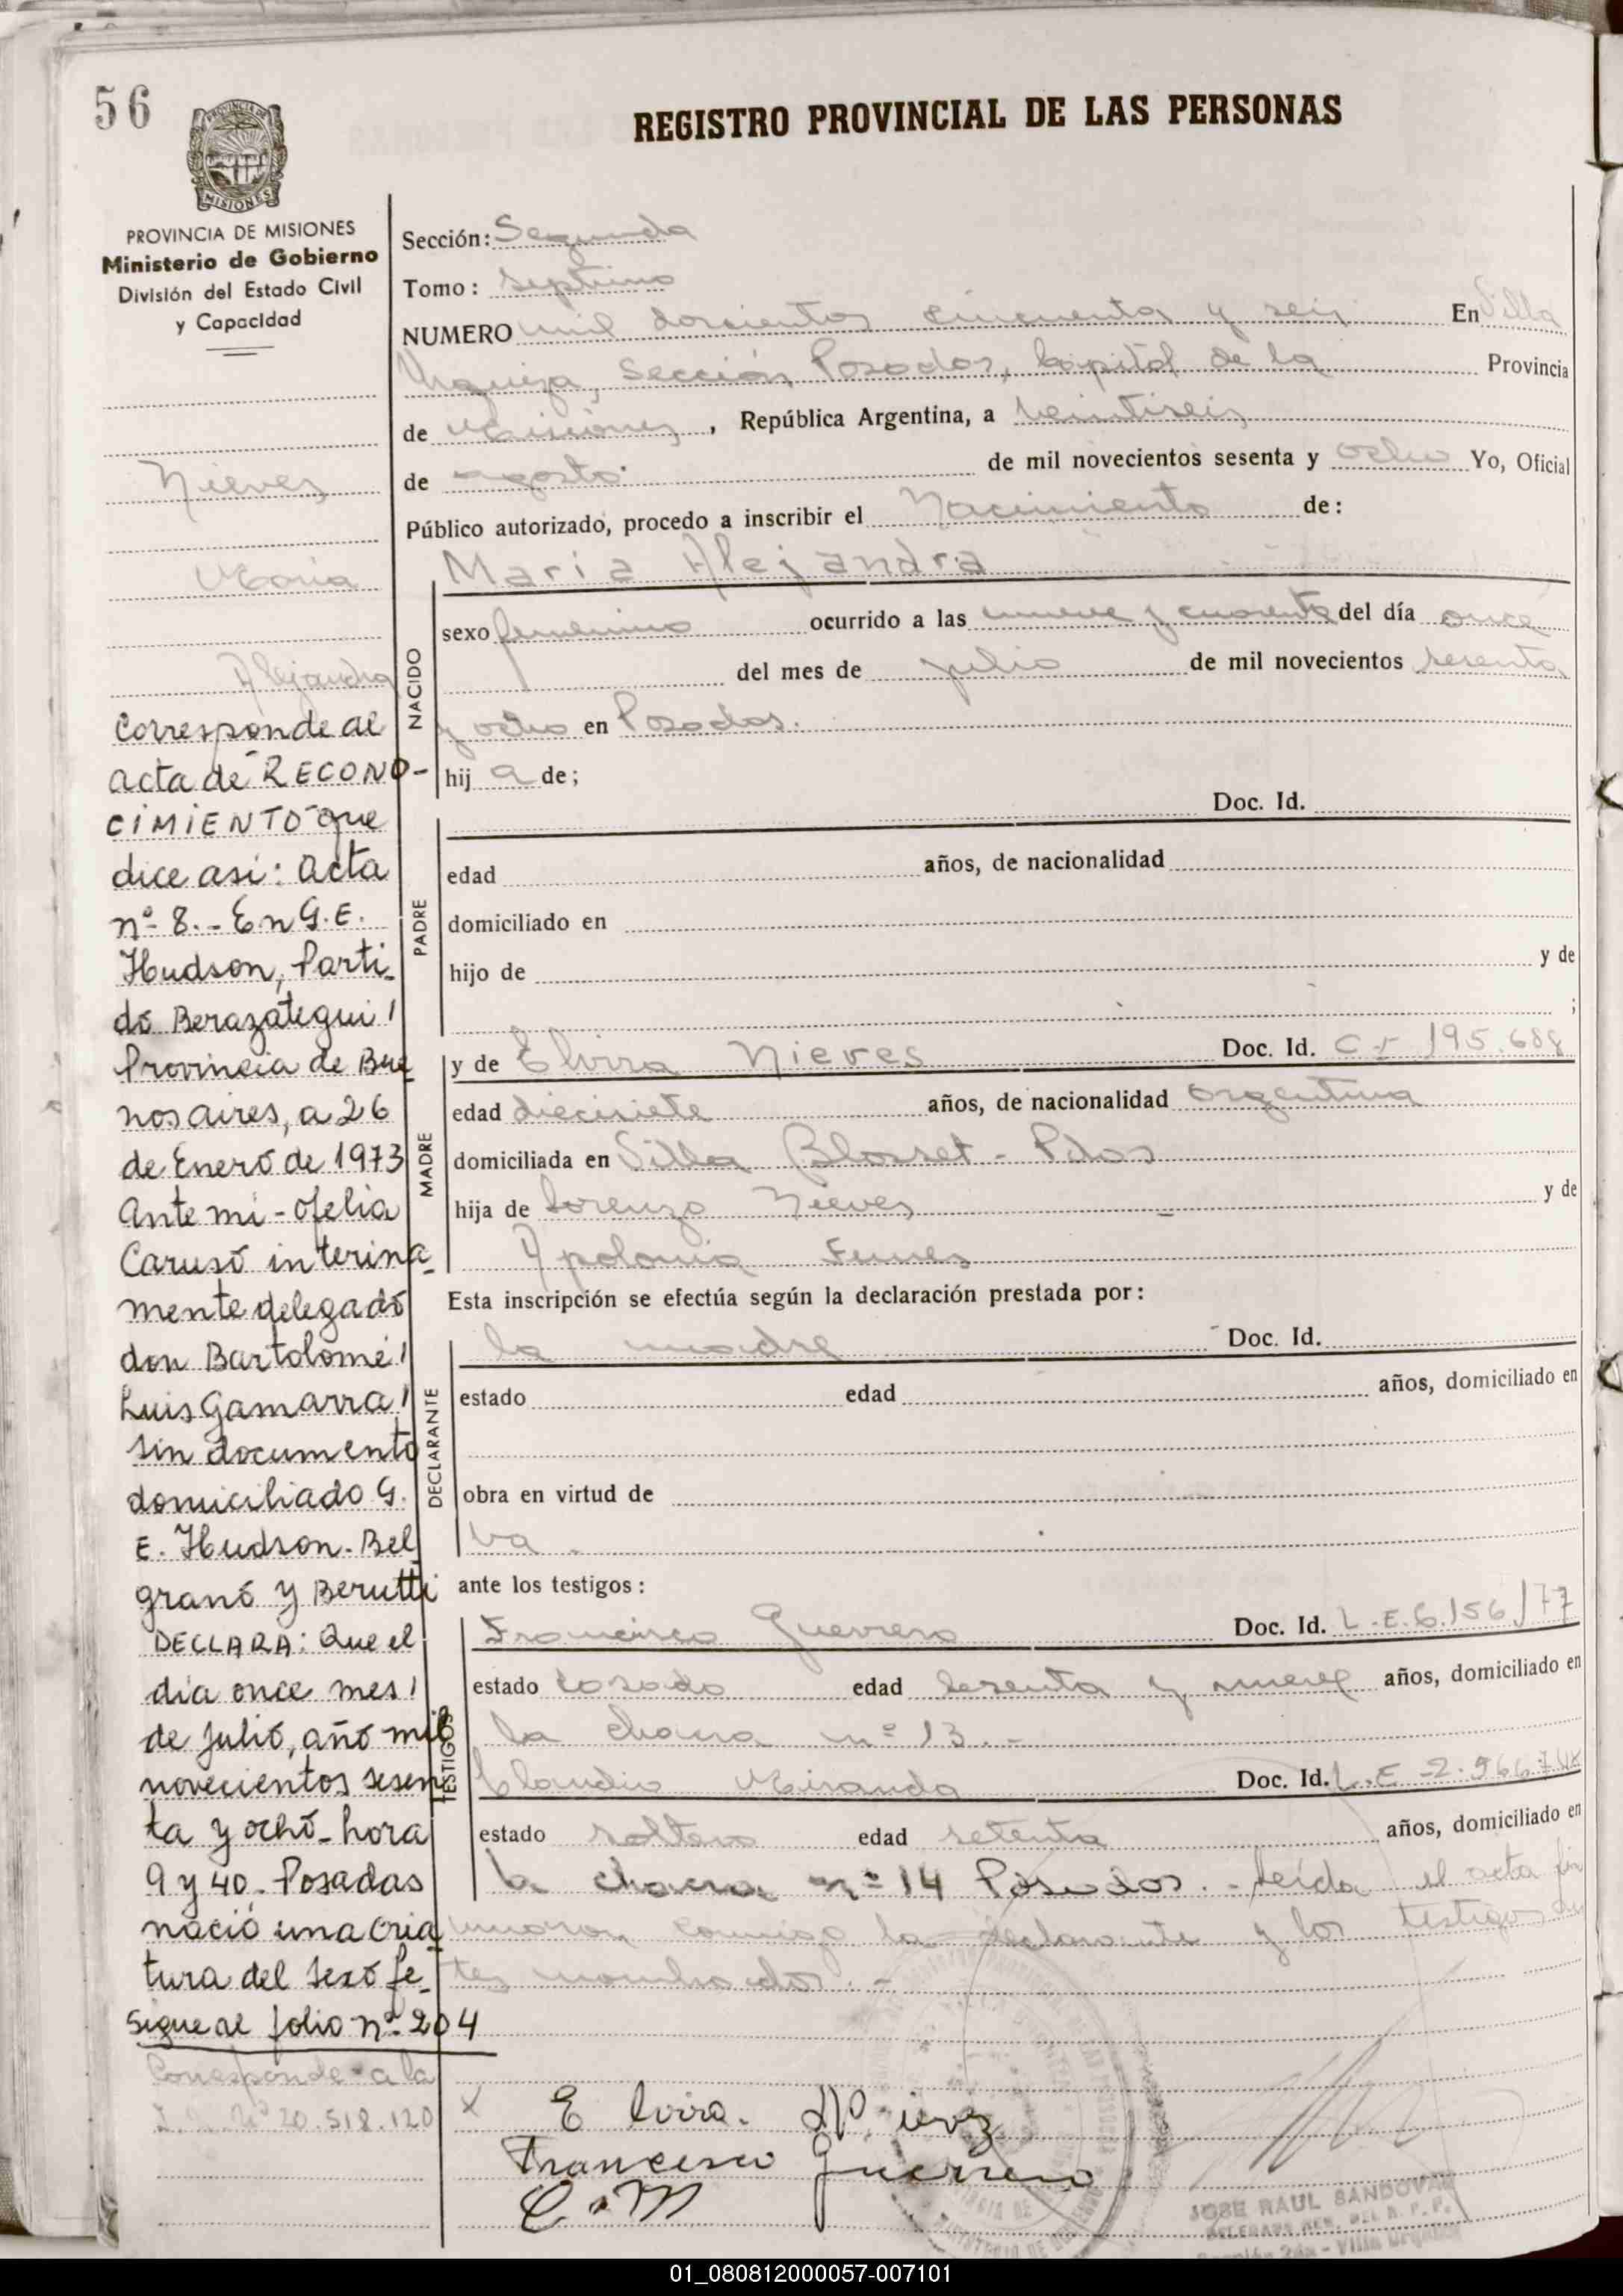 56
REGISTRO PROVINCIAL DE LAS PERSONAS
PROVINCIA DE MISIONES
Ministerio de Gobierno
División del Estado Civil
y Capacidad
Nieves
Maria
Alejandra
Corresponde al
acta de RECONO-
CIMIENTO que
dice asi: Acta
nº 8.- En G.E.
Hudson, Parti-
do Berazategui
Provincia de Bue
nos aires, a 26
de Enero de 1973
Ante mi - Ofelia
Caruso interina-
mente delegado
don Bartolomé
Luis Gamarra
sin documento
domiciliado G.
E. Hudson - Bel
grano y Berutti
DECLARA: Que el
dia once mes
de Julio, año mil
novecientos sesen
ta y ocho - hora
9 y 40 - Posadas
nació una cria
tura del sexo fe-
Sigue al folio nº 204
Corresponde a la
20.518.120
Sección: Segunda
Tomo: septimo
NUMERO mil doscientos cincuenta y seis En Villa
Urquiza, Sección Posadas, Capital de la Provincia
de Misiones, República Argentina, a veintiseis
de agosto de mil novecientos sesenta y ocho Yo, Oficial
Público autorizado, procedo a inscribir el Nacimiento de:
Maria Alejandra
NACIDO
sexo femenino ocurrido a las nueve y cuarenta del día once
del mes de julio de mil novecientos sesenta
y ocho en Posadas.
hij a de;
Doc. Id.
PADRE
edad años, de nacionalidad
domiciliado en
hijo de y de
;
MADRE
y de Elvira Nieves Doc. Id. C I 195.688
edad diecisiete años, de nacionalidad argentina
domiciliada en Villa Blosset - Pdas
hija de Lorenzo Nieves y de
Apolonia
Esta inscripción se efectúa según la declaración prestada por:
DECLARANTE
la madre Doc. Id.
estado edad años, domiciliado en
obra en virtud de
ante los testigos:
TESTIGOS
Francisco Guerrero Doc. Id. L.E. 6.156.177
estado casado edad sesenta y nueve años, domiciliado en
la chacra nº 13.-
Claudio Miranda Doc. Id. L.E 2.966.7
estado soltero edad setenta años, domiciliado en
la chacra nº 14 Posadas.- Leída el acta fir
maron conmigo la declarante y los testigos an
tes nombrados.-
x Elvira. Nieves
Francisco Guerrero
C. M
JOSE RAUL SANDOVAL
01_080812000057-007101